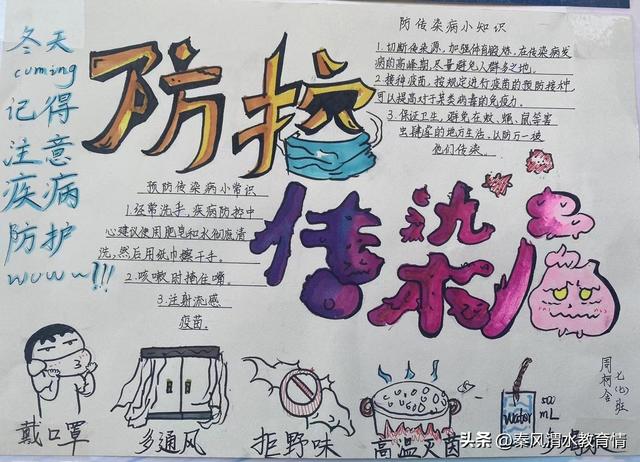 冬天
cuming
记得
注意
疾病
防护
wuwu~!!!
防控
传染病
防传染病小知识
1.切断传染源,加强体育锻炼,在传染病发
病的高峰期,尽量避免人群多之地。
2.接种疫苗,按规定进行疫苗的预防接种
可以提高对于某类病毒的免疫力。
3.保证卫生,避免在蚊、蝇、鼠等害
虫肆虐的地方生活,以防万一被
它们传染。
预防传染病小常识
1.经常洗手,疾病防控中
心建议使用肥皂和水彻底清
洗,然后用纸巾擦干手。
2.咳嗽时掩住嘴。
3.注射流感
疫苗。
戴口罩
多通风
拒野味
高温灭菌
water
500
mL
七(七)班
头条 @秦风渭水教育情